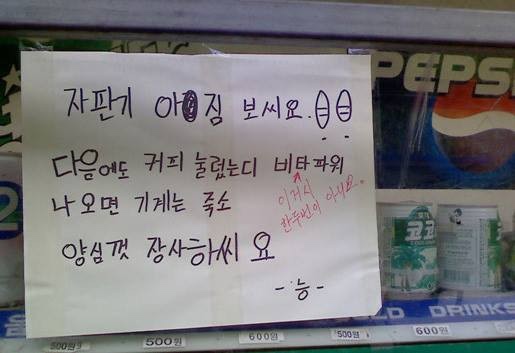 PEPSI
자판기 아짐 보씨요.
다음에도 커피 눌렀는디 비타파워
나오면 기계는 죽소
이거시
한두번이 아니요..
양심껏 장사하씨요
-능-
코코
500원
500원
600원
500원
600원
DRINKS